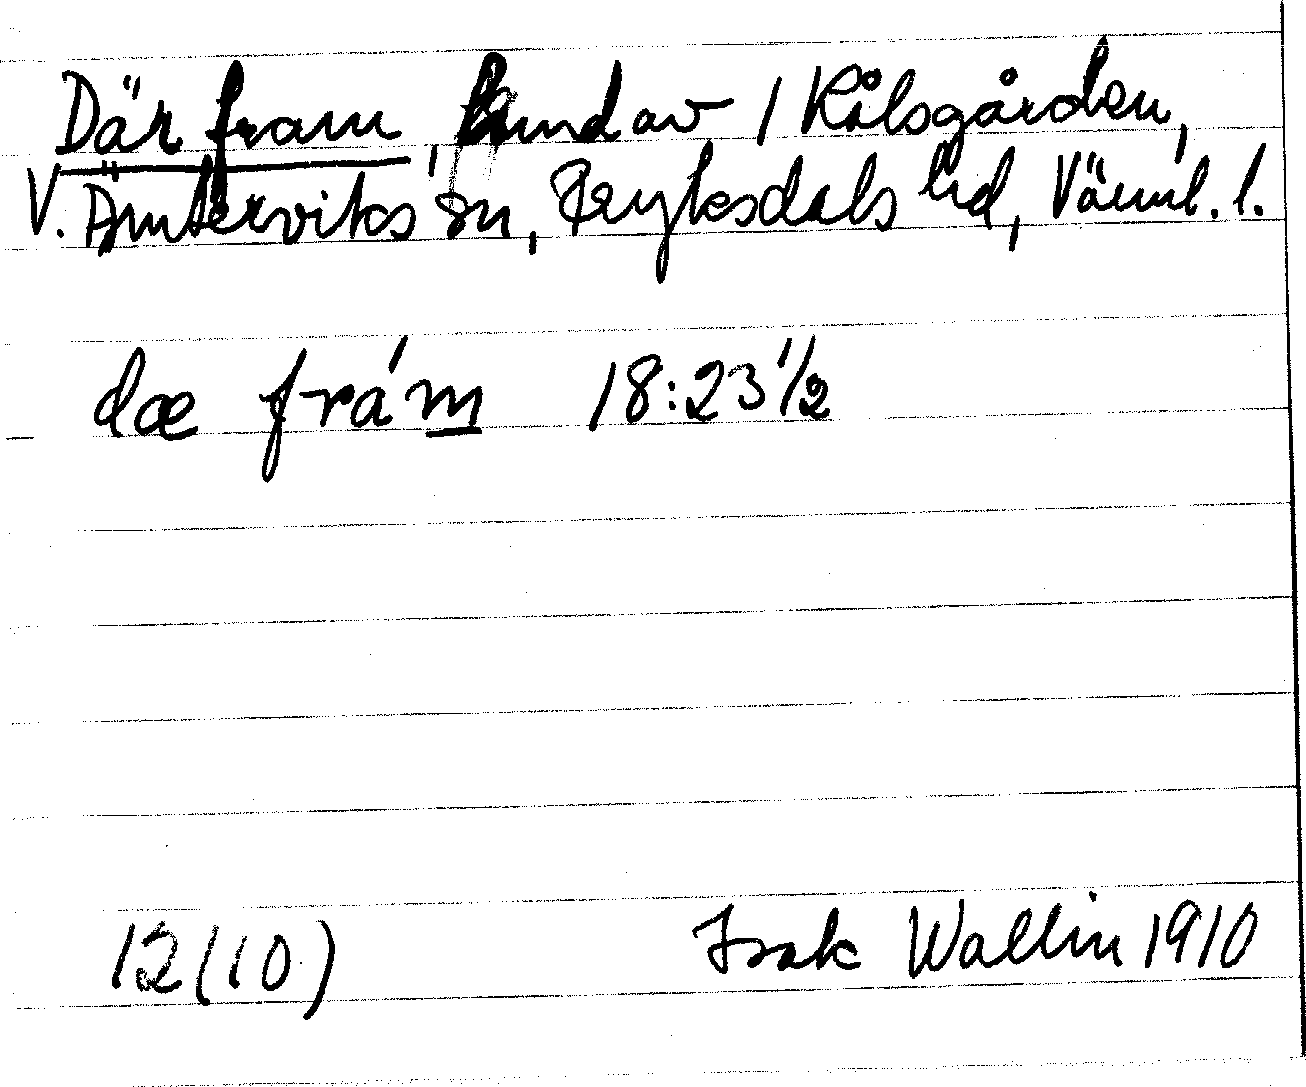 Där fram, kund av / Rålsgården,
V. Ämterviks sn, Fryksdals hd, Värml. l.
dæ frá'm 18:23 1/2
12(10) Isak Wallin 1910